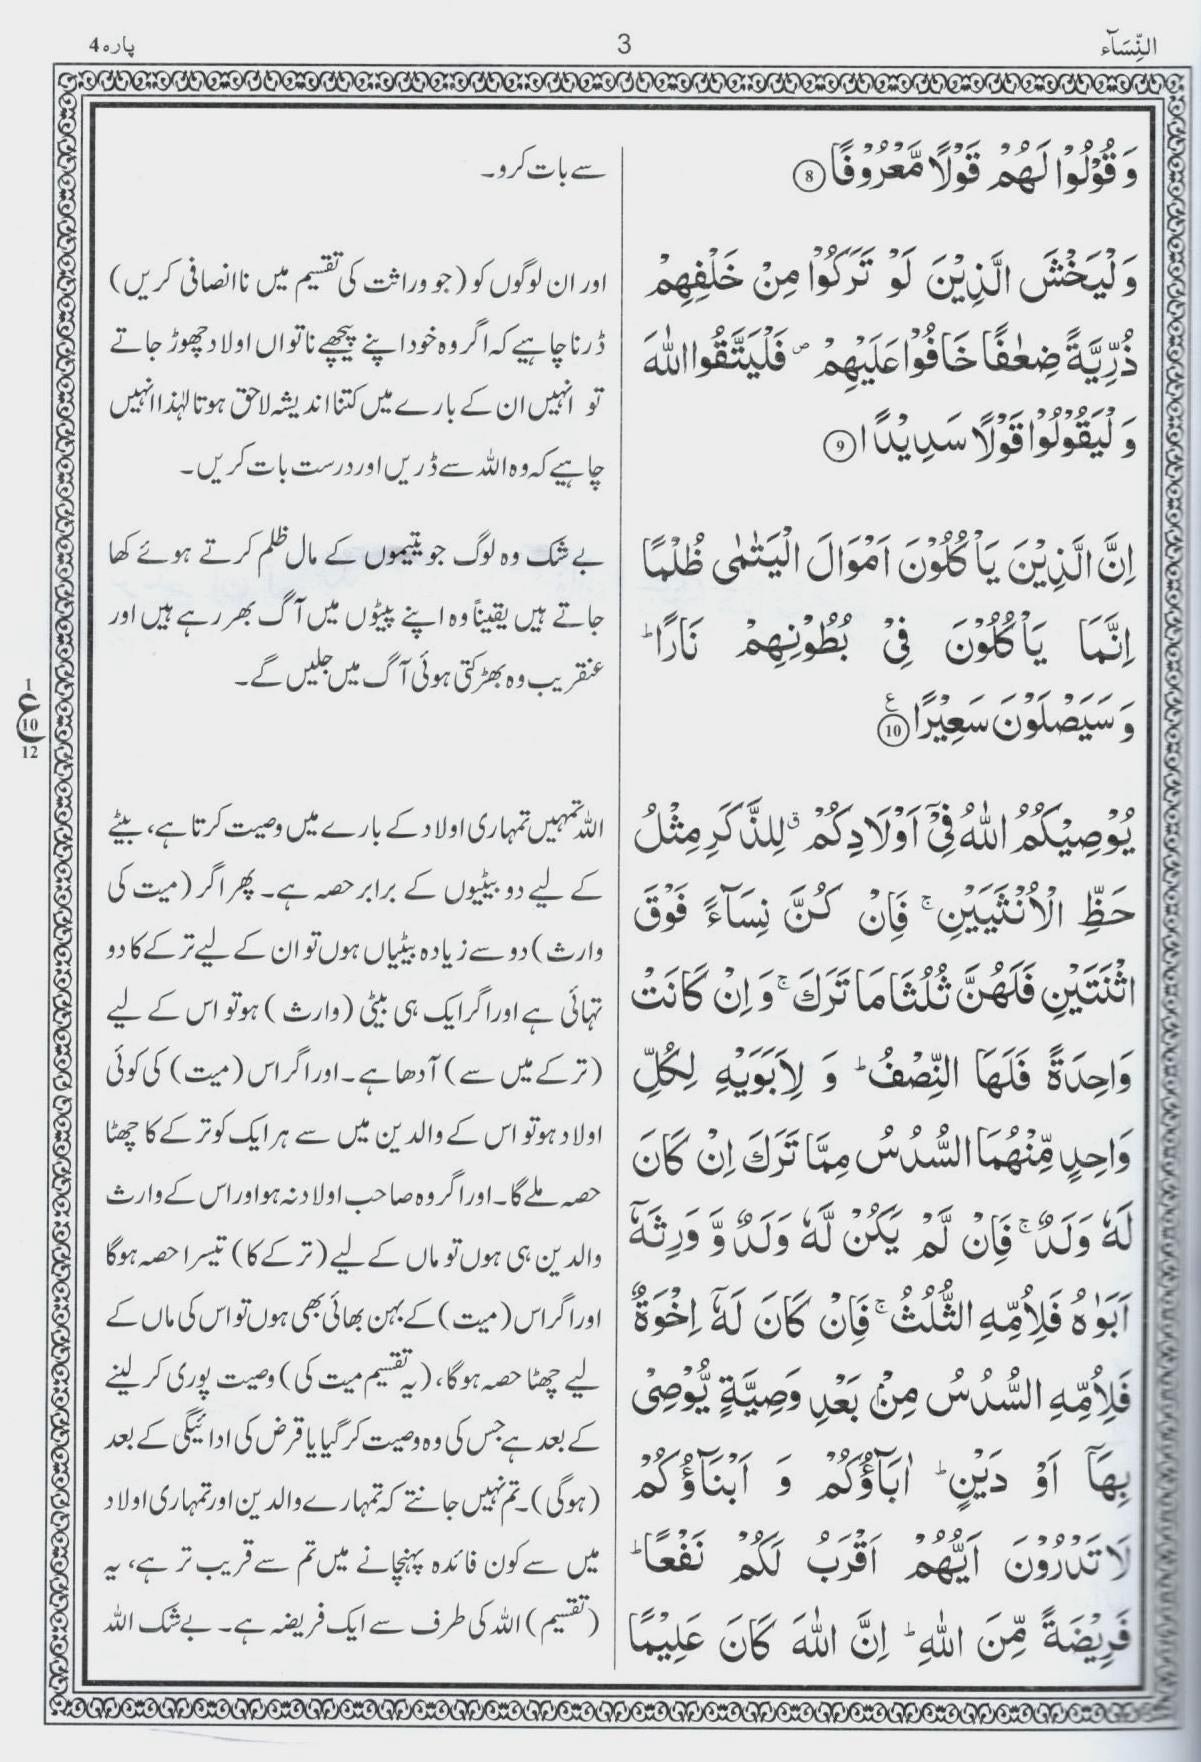 النِّسَآء
3
پارہ 4
وَقُوْلُوْا لَهُمْ قَوْلًا مَّعْرُوْفًا ⑧
وَلْيَخْشَ الَّذِيْنَ لَوْ تَرَكُوْا مِنْ خَلْفِهِمْ
ذُرِّيَّةً ضِعٰفًا خَافُوْا عَلَيْهِمْ ۪ فَلْيَتَّقُوا اللّٰهَ
وَلْيَقُوْلُوْا قَوْلًا سَدِيْدًا ⑨
اِنَّ الَّذِيْنَ يَاْكُلُوْنَ اَمْوَالَ الْيَتٰمٰى ظُلْمًا
اِنَّمَا يَاْكُلُوْنَ فِىْ بُطُوْنِهِمْ نَارًا ؕ
وَسَيَصْلَوْنَ سَعِيْرًا ⑩ ع
يُوْصِيْكُمُ اللّٰهُ فِىْۤ اَوْلَادِكُمْ ۗ لِلذَّكَرِ مِثْلُ
حَظِّ الْاُنْثَيَيْنِ ۚ فَاِنْ كُنَّ نِسَآءً فَوْقَ
اثْنَتَيْنِ فَلَهُنَّ ثُلُثَا مَا تَرَكَ ۚ وَاِنْ كَانَتْ
وَاحِدَةً فَلَهَا النِّصْفُ ؕ وَ لِاَبَوَيْهِ لِكُلِّ
وَاحِدٍ مِّنْهُمَا السُّدُسُ مِمَّا تَرَكَ اِنْ كَانَ
لَهٗ وَلَدٌ ۚ فَاِنْ لَّمْ يَكُنْ لَّهٗ وَلَدٌ وَّ وَرِثَهٗۤ
اَبَوٰهُ فَلِاُمِّهِ الثُّلُثُ ۚ فَاِنْ كَانَ لَهٗۤ اِخْوَةٌ
فَلِاُمِّهِ السُّدُسُ مِنْۢ بَعْدِ وَصِيَّةٍ يُّوْصِىْ
بِهَاۤ اَوْ دَيْنٍ ؕ اٰبَآؤُكُمْ وَ اَبْنَآؤُكُمْ
لَا تَدْرُوْنَ اَيُّهُمْ اَقْرَبُ لَكُمْ نَفْعًا ؕ
فَرِيْضَةً مِّنَ اللّٰهِ ؕ اِنَّ اللّٰهَ كَانَ عَلِيْمًا
سے بات کرو۔
اور ان لوگوں کو (جو وراثت کی تقسیم میں ناانصافی کریں)
ڈرنا چاہیے کہ اگر وہ خود اپنے پیچھے ناتواں اولاد چھوڑ جاتے
تو انہیں ان کے بارے میں کتنا اندیشہ لاحق ہوتا لہٰذا انہیں
چاہیے کہ وہ اللہ سے ڈریں اور درست بات کریں۔
بے شک وہ لوگ جو یتیموں کے مال ظلم کرتے ہوئے کھا
جاتے ہیں یقیناً وہ اپنے پیٹوں میں آگ بھر رہے ہیں اور
عنقریب وہ بھڑکتی ہوئی آگ میں جلیں گے۔
اللہ تمہیں تمہاری اولاد کے بارے میں وصیت کرتا ہے، بیٹے
کے لیے دو بیٹیوں کے برابر حصہ ہے۔ پھر اگر (میت کی
وارث) دو سے زیادہ بیٹیاں ہوں تو ان کے لیے ترکے کا دو
تہائی ہے اور اگر ایک ہی بیٹی (وارث) ہو تو اس کے لیے
(ترکے میں سے) آدھا ہے۔ اور اگر اس (میت) کی کوئی
اولاد ہو تو اس کے والدین میں سے ہر ایک کو ترکے کا چھٹا
حصہ ملے گا۔ اور اگر وہ صاحب اولاد نہ ہو اور اس کے وارث
والدین ہی ہوں تو ماں کے لیے (ترکے کا) تیسرا حصہ ہو گا
اور اگر اس (میت) کے بہن بھائی بھی ہوں تو اس کی ماں کے
لیے چھٹا حصہ ہو گا، (یہ تقسیم میت کی) وصیت پوری کر لینے
کے بعد ہے جس کی وہ وصیت کر گیا یا قرض کی ادائیگی کے بعد
(ہو گی)۔ تم نہیں جانتے کہ تمہارے والدین اور تمہاری اولاد
میں سے کون فائدہ پہنچانے میں تم سے قریب تر ہے، یہ
(تقسیم) اللہ کی طرف سے ایک فریضہ ہے۔ بے شک اللہ
1
ع
10
12